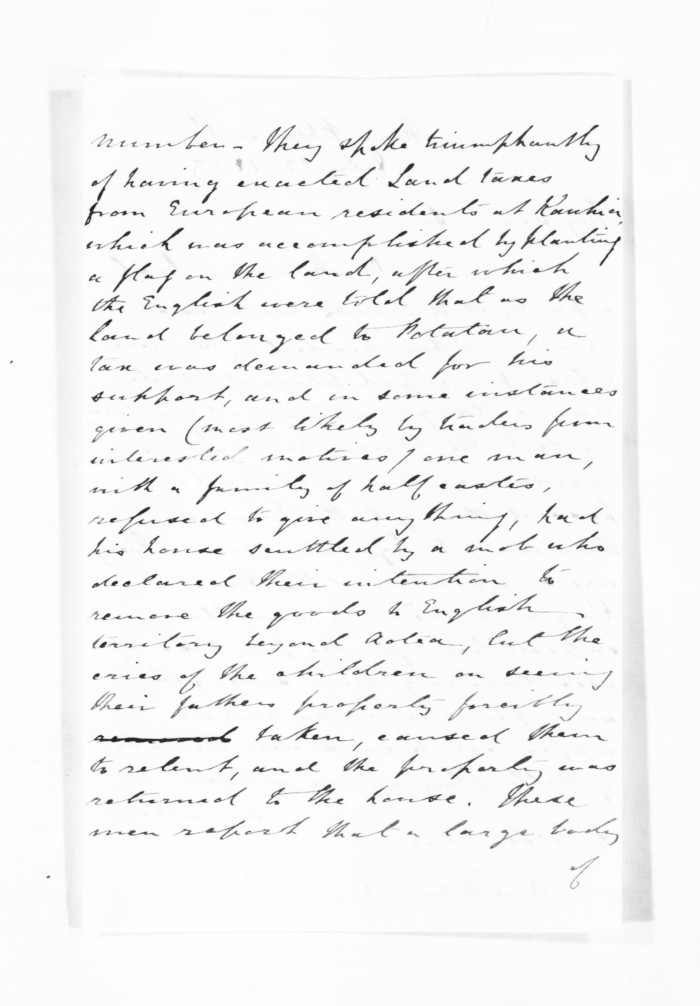 number - They spoke triumphantly
of having exacted Land taxes
from European residents at Kawhia,
which was accomplished by planting
a flag on the land, after which
the English were told that as the
land belonged to Potatau, a
tax was demanded for his
support, and in some instances
given (most likely by traders from
interested motives) one man,
with a family of half castes,
refused to give anything, had
his house by a mob who
declared their intention to
remove the goods to English
territory beyond Aotea, but the
cries of the children on seeing
their fathers property forcibly
removed taken, caused them
to relent, and the property was
returned to the house. These
men report that a large body
of